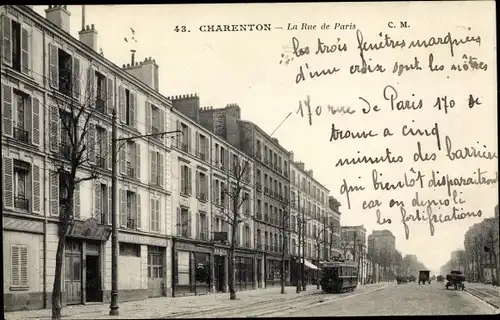 43. CHARENTON — La Rue de Paris C. M.
les trois fenêtres marquées
d'une croix sont les nôtres
170 rue de Paris 170 se
trouve a cinq
minutes des barrières
qui bientôt disparaitront
car on démoli
les fortifications